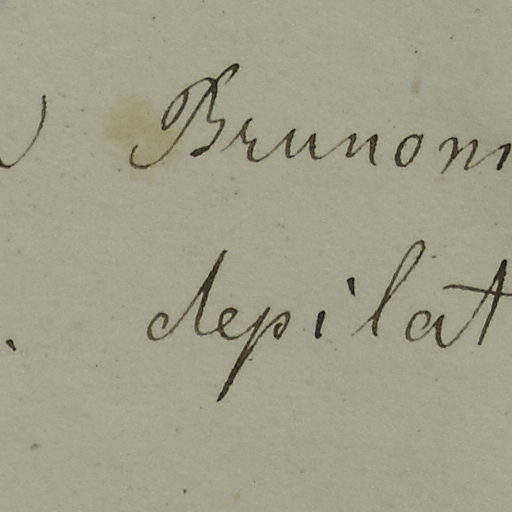 Brunon
depilat